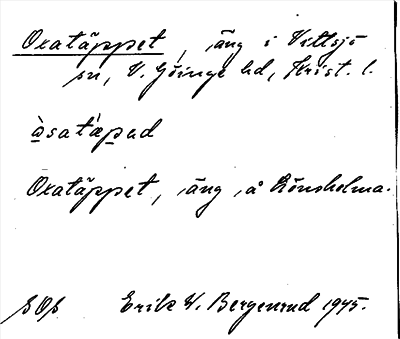 Oxatäppet, äng i Vittsjö
sn, V. Göinge hd, Krist. l.
Oxatäppet, äng å Rönsholma.
SOÞ Erik W. Bergenrud 1945.